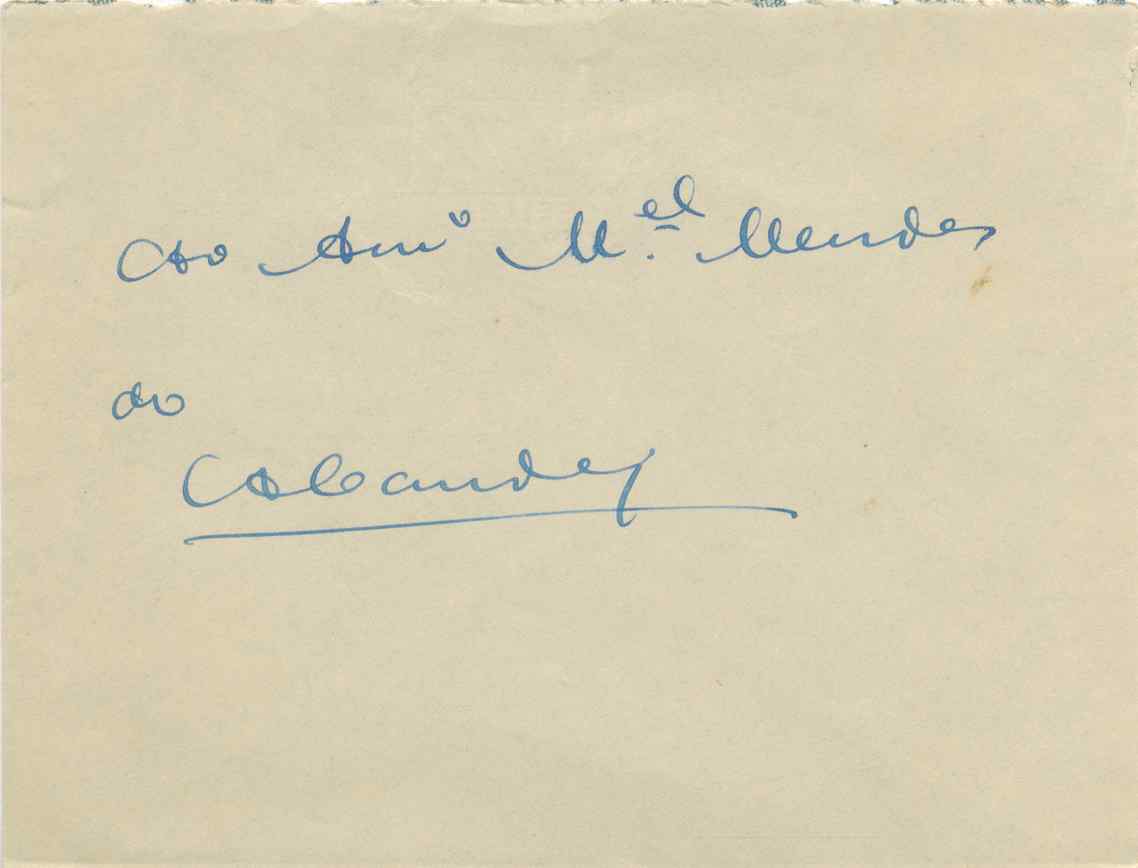 Ao Am.º M.el Mendes
do
Abcandez